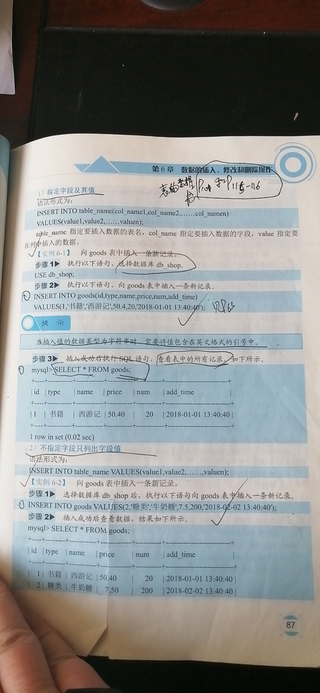 第6章 数据的插入、修改和删除操作
1. 指定字段及其值
语法形式为:
INSERT INTO table_name(col_name1,col_name2,……colnamen)
VALUES(value1,value2,……valuen);
table_name 指定要插入数据的表名, col_name 指定要插入数据的字段, value 指定要
在列中插入的数据。
【实例 6-1】 向 goods 表中插入一条新记录。
步骤 1▶ 执行以下语句, 选择数据库 db_shop.
USE db_shop;
步骤 2▶ 执行以下语句, 向 goods 表中插入一条新记录。
INSERT INTO goods(id,type,name,price,num,add_time)
VALUES(1,'书籍','西游记',50.4,20,'2018-01-01 13:40:40');
提 示
插入值的数据类型为字符串时, 需要将值包含在英文格式的引号中。
步骤 3▶ 插入成功后执行 SQL 语句, 查看表中的所有记录, 如下所示。
mysql> SELECT * FROM goods;
| id | type | name | price | num | add_time |
| 1 | 书籍 | 西游记 | 50.40 | 20 | 2018-01-01 13:40:40
1 row in set (0.02 sec)
2. 不指定字段只列出字段值
语法形式为:
INSERT INTO table_name VALUES(value1,value2,……,valuen);
【实例 6-2】 向 goods 表中插入一条新记录。
步骤 1▶ 选择数据库 db_shop 后, 执行以下语句向 goods 表中插入一条新记录。
INSERT INTO goods VALUES(2,'糖类','牛奶糖',7.5,200,'2018-02-02 13:40:40');
步骤 2▶ 插入成功后查看数据, 结果如下所示。
mysql> SELECT * FROM goods;
| id | type | name | price | num | add_time
| 1 | 书籍 | 西游记 | 50.40 | 20 | 2018-01-01 13:40:40 |
| 2 | 糖类 | 牛奶糖 | 7.50 | 200 | 2018-02-02 13:40:40 |
87